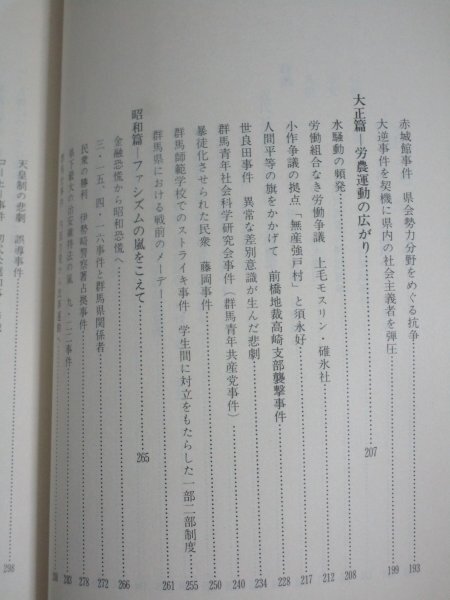 赤城館事件　県会勢力分野をめぐる抗争 193
大逆事件を契機に県内の社会主義者を弾圧 199
大正篇―労農運動の広がり 207
水騒動の頻発 208
労働組合なき労働争議　上毛モスリン・碓氷社 212
小作争議の拠点「無産強戸村」と須永好 217
人間平等の旗をかかげて　前橋地裁高崎支部襲撃事件 228
世良田事件　異常な差別意識が生んだ悲劇 234
群馬青年社会科学研究会事件（群馬青年共産党事件） 240
暴徒化させられた民衆　藤岡事件 250
群馬師範学校でのストライキ事件　学生間に対立をもたらした一部二部制度 255
群馬県における戦前のメーデー 261
昭和篇―ファシズムの嵐をこえて 265
金融恐慌から昭和恐慌へ 266
三・一五、四・一六事件と群馬県関係者 272
民衆の勝利　伊勢崎警察署占拠事件 278
県下最大の治安維持法の嵐　九・二一事件 283
天皇制の悲劇　誤導事件 298